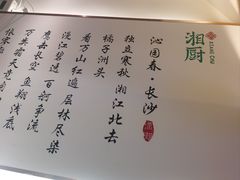 湘厨
沁园春·长沙
独立寒秋 湘江北去
橘子洲头
看万山红遍 层林尽染
漫江碧透 百舸争流
鹰击长空 鱼翔浅底
万类霜天竞自由
怅寥廓